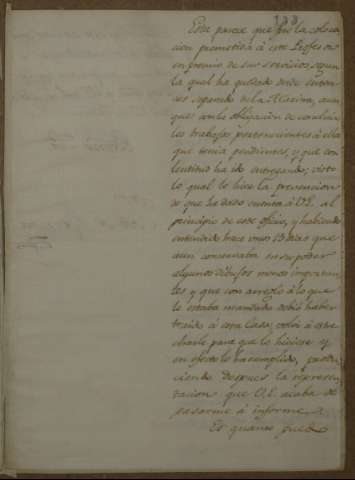 133
Este parece que fué la coloca
cion prometida á este Profesor
en premio de sus servicios, segun
la qual ha quedado desde enton
ces separado de la Marina, aun
que con la obligacion de concluir
los trabajos pertenecientes á ella
que tenia pendientes, y que con
lentitud ha ido entregando; visto
lo qual le hice la prevencion
de que ha dado cuenta á V.E. al
principio de este oficio, y habiendo
entendido hace unos 15 dias que
aun conservaba en su poder
algunos dibujos menos importan
tes y que con arreglo á lo que
le estaba mandado debió haber
traido á esta Casa, volví á estre
charle para que lo hiciese y
en efecto lo ha cumplido, 
ciendo despues la represen
tacion que V.E. acaba de
pasarme á informe.
Es quanto puedo